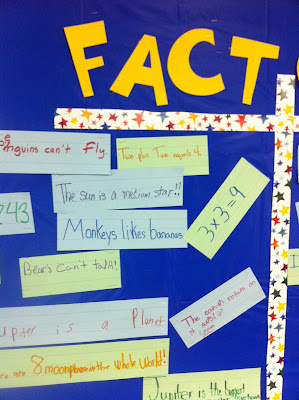 FACT
Penguins can't Fly.
Two plus Two equals 4.
The sun is a medium star!!
243
3x3=9
Monkeys likes bananas
Bears Can't talk!
The earth rotate on
it
Jupiter is a Planet
are 8 moon phases in the whole World!
Jupiter is the biggest